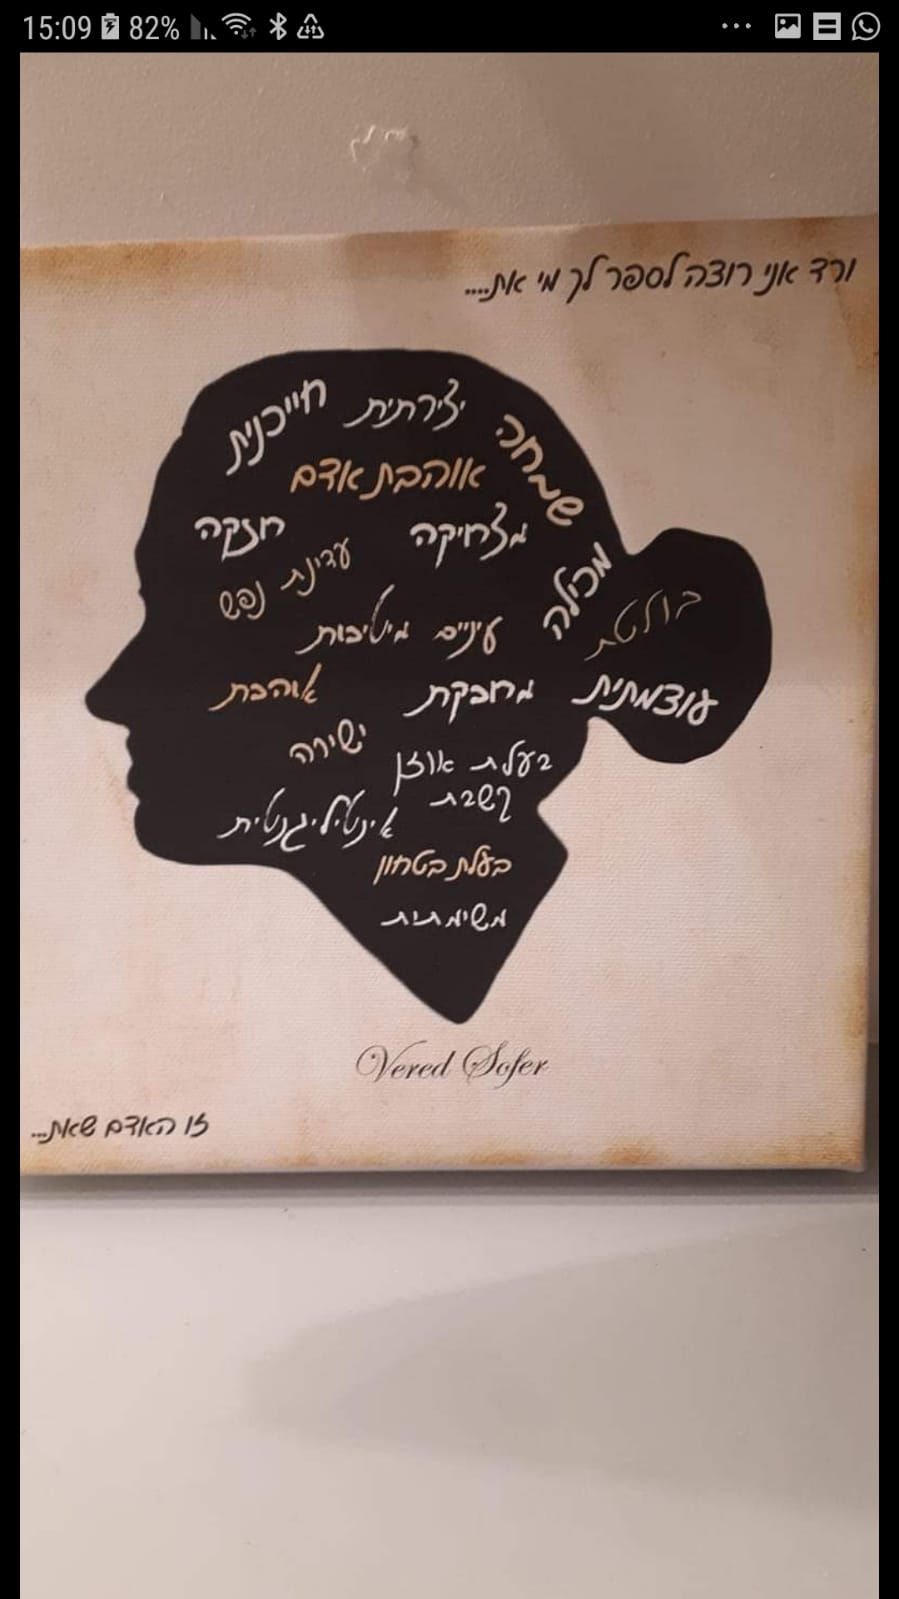 15:09
82%
ורד אני רוצה לספר לך מי את....
חייכנית
יצירתית
שמחה
אוהבת אדם
חזקה
מצחיקה
עדינת נפש
מכילה
בולטת
עיניים מיטיבות
אוהבת
מחבקת
עוצמתית
ישירה
בעלת אוזן
קשבת
אינטליגנטית
בעלת בטחון
משימתית
Vered Sofer
זו האדם שאת...